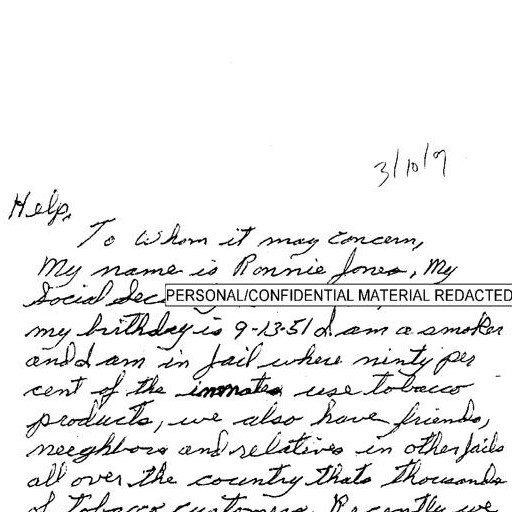 3/10/09
Help,
To Whom it may concern,
My name is Ronnie Jones, My
Social Sec PERSONAL/CONFIDENTIAL MATERIAL REDACTED
my birthday is 9-13-51 I am a smoker
and I am in Jail where ninty per
cent of the inmates use tobacco
products, we also have friends,
neeghbors and relatives in other Jails
all over the country thats thousands
of tobacco customers. Recently we